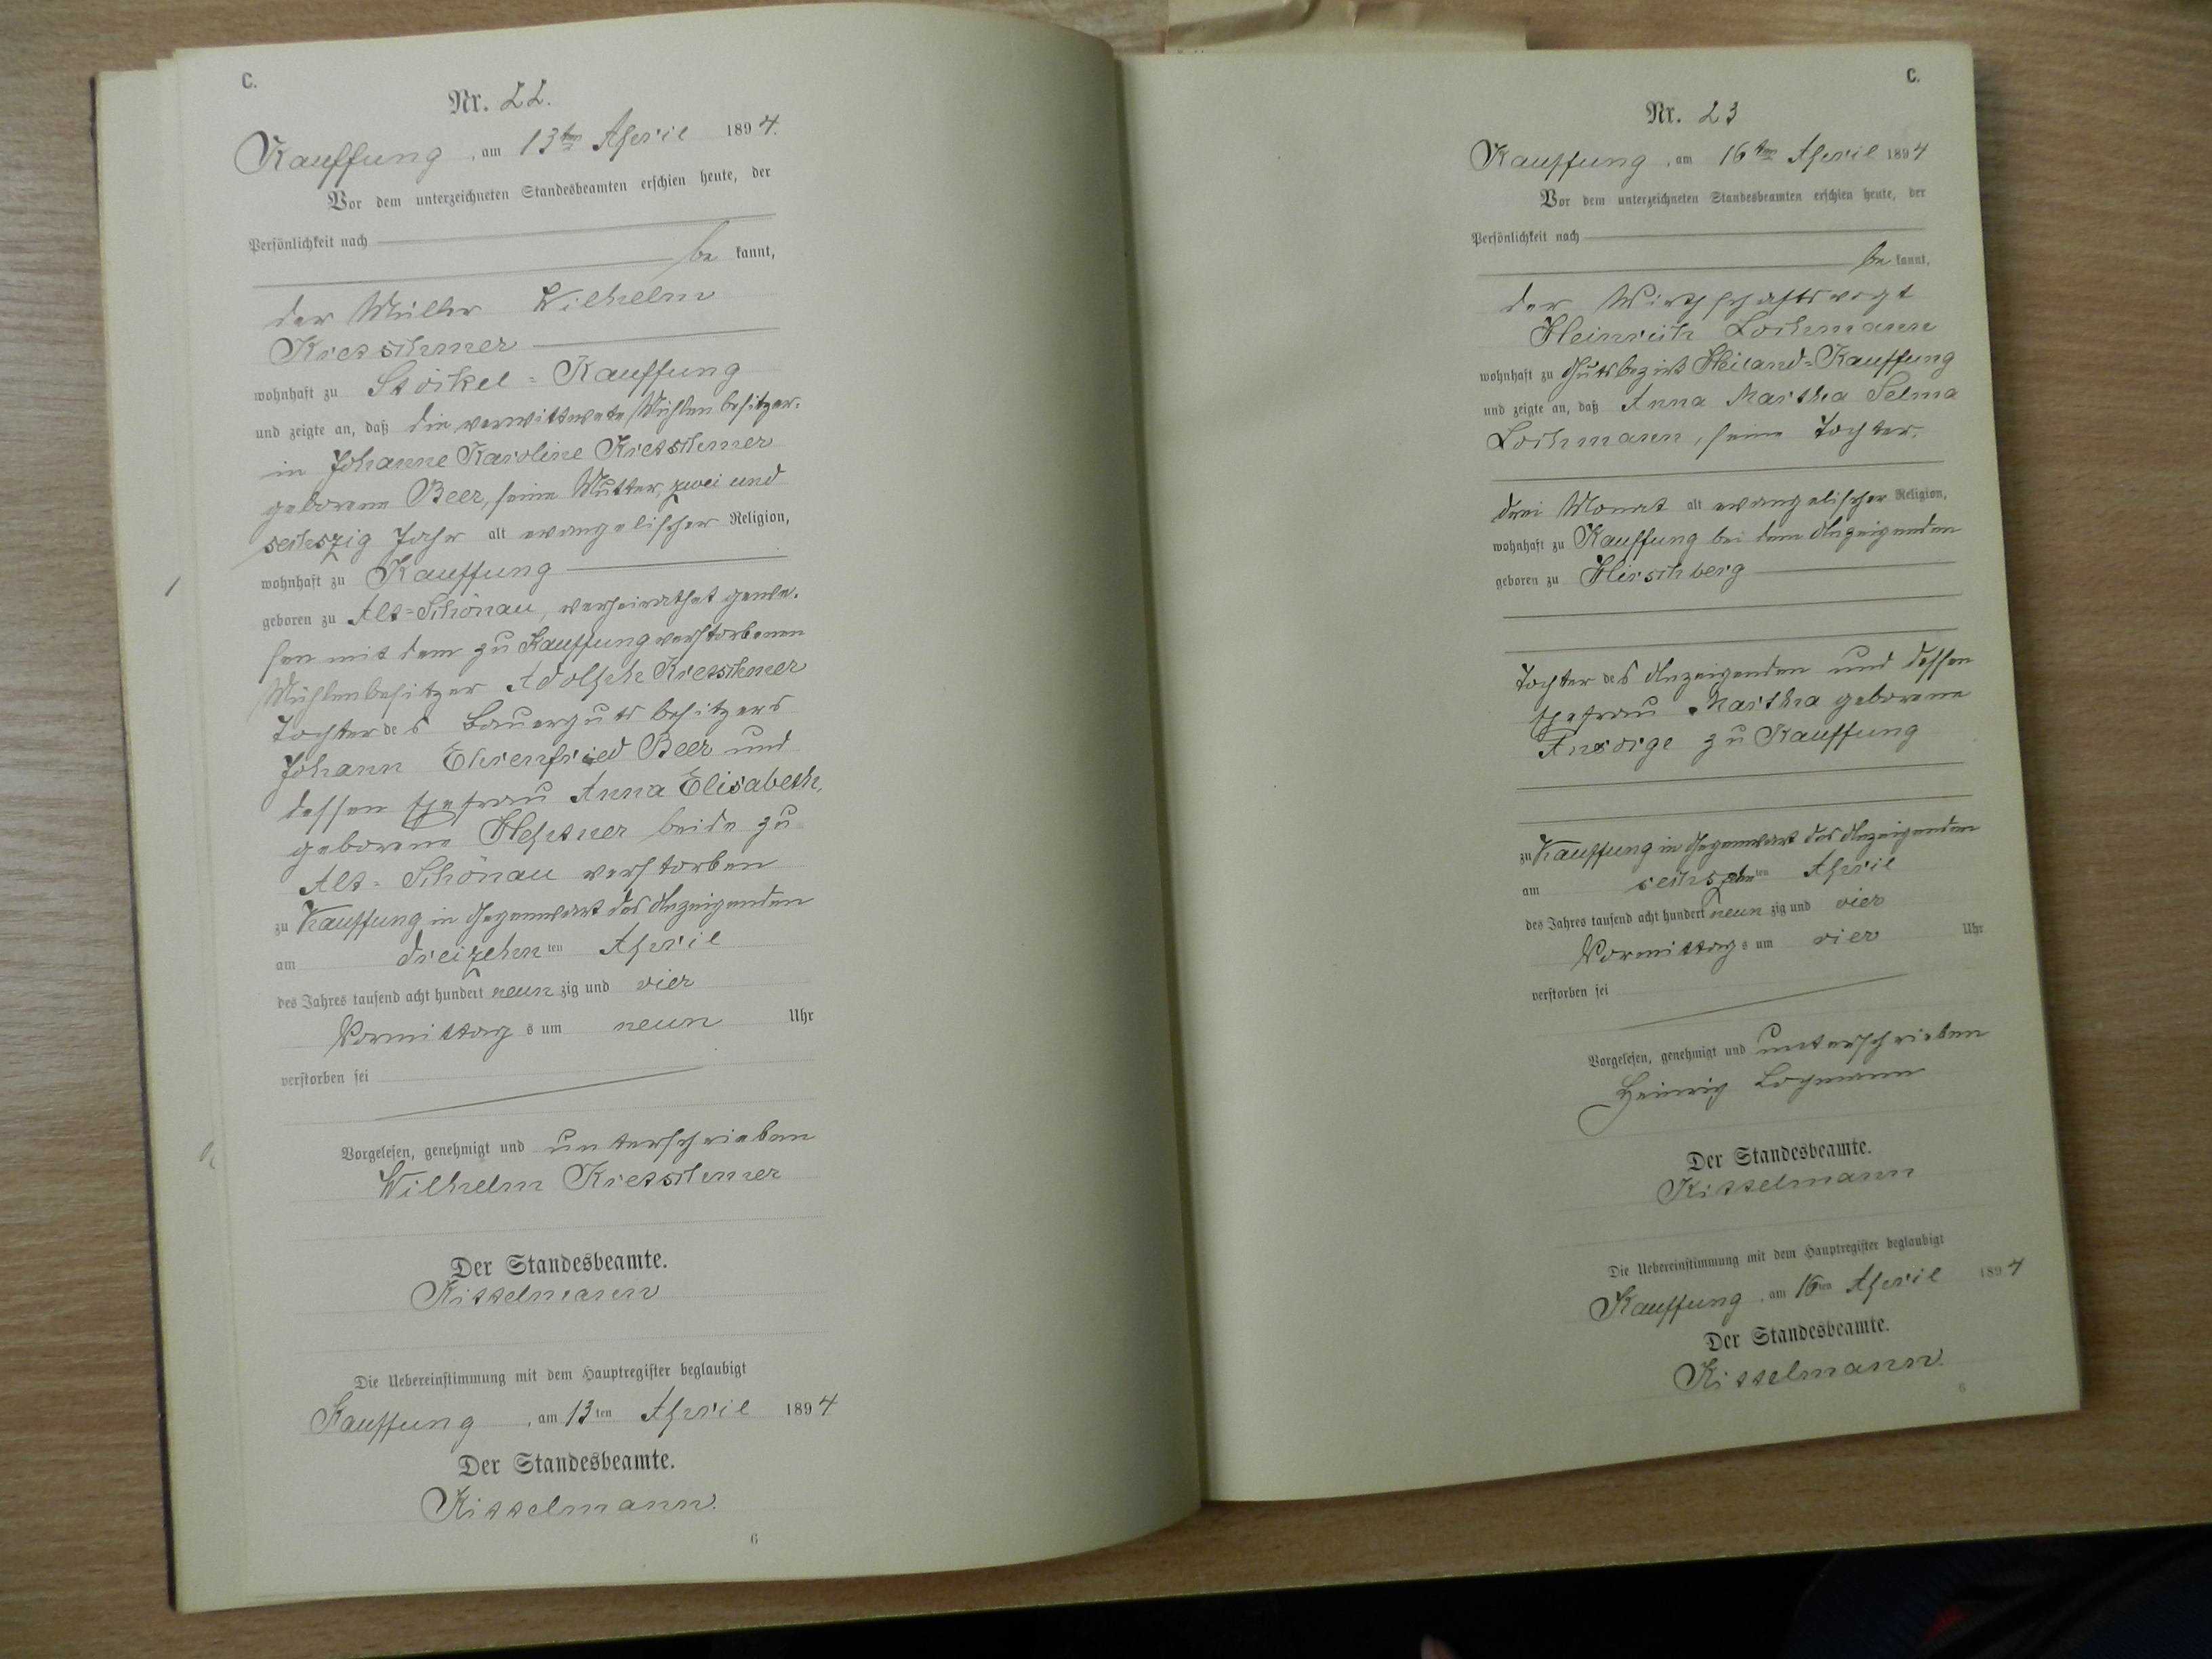 C.
Nr. 22.
Kauffung, am 13ten April 1894.
Vor dem unterzeichneten Standesbeamten erschien heute, der
Persönlichkeit nach
be kannt,
der Müller Wilhelm
Kretschmer
wohnhaft zu Stöckel-Kauffung
und zeigte an, daß die verwittwete Mühlenbesitzer-
in Johanne Karoline Kretschmer
geborene Beer, seine Mutter, zwei und
sechszig Jahr alt evangelischer Religion,
wohnhaft zu Kauffung
geboren zu Alt-Schönau, verheirathet gewe-
sen mit dem zu Kauffung verstorbenen
Mühlenbesitzer Adolph Kretschmer
Tochter des Bauergutsbesitzers
Johann Ehrenfried Beer und
dessen Ehefrau Anna Elisabeth,
geborene beide zu
Alt-Schönau verstorben
zu Kauffung in Gegenwart des Anzeigenden
am dreizehnten April
des Jahres tausend acht hundert neunzig und vier
Vormittags um neun Uhr
verstorben sei
Vorgelesen, genehmigt und unterschrieben
Wilhelm Kretschmer
Der Standesbeamte.
Kittelmann
Die Uebereinstimmung mit dem Hauptregister beglaubigt
Kauffung, am 13ten April 1894
Der Standesbeamte.
Kittelmann.
6
C.
Nr. 23
Kauffung, am 16ten April 1894
Vor dem unterzeichneten Standesbeamten erschien heute, der
Persönlichkeit nach
be kannt,
der Wirthschaftsvogt
Heinrich Lochmann
wohnhaft zu Gutsbezirk Heiland-Kauffung
und zeigte an, daß Anna Martha Selma
Lochmann, seine Tochter.
drei Monat alt evangelischer Religion,
wohnhaft zu Kauffung bei dem Anzeigenden
geboren zu Hirschberg
Tochter des Anzeigenden und dessen
Ehefrau Martha geborene
Ansorge zu Kauffung
zu Kauffung in Gegenwart des Anzeigenden
am sechszehnten April
des Jahres tausend acht hundert neunzig und vier
Vormittags um vier Uhr
verstorben sei
Vorgelesen, genehmigt und unterschrieben
Heinrich Lochmann
Der Standesbeamte.
Kittelmann
Die Uebereinstimmung mit dem Hauptregister beglaubigt
Kauffung, am 16ten April 1894
Der Standesbeamte.
Kittelmann.
6